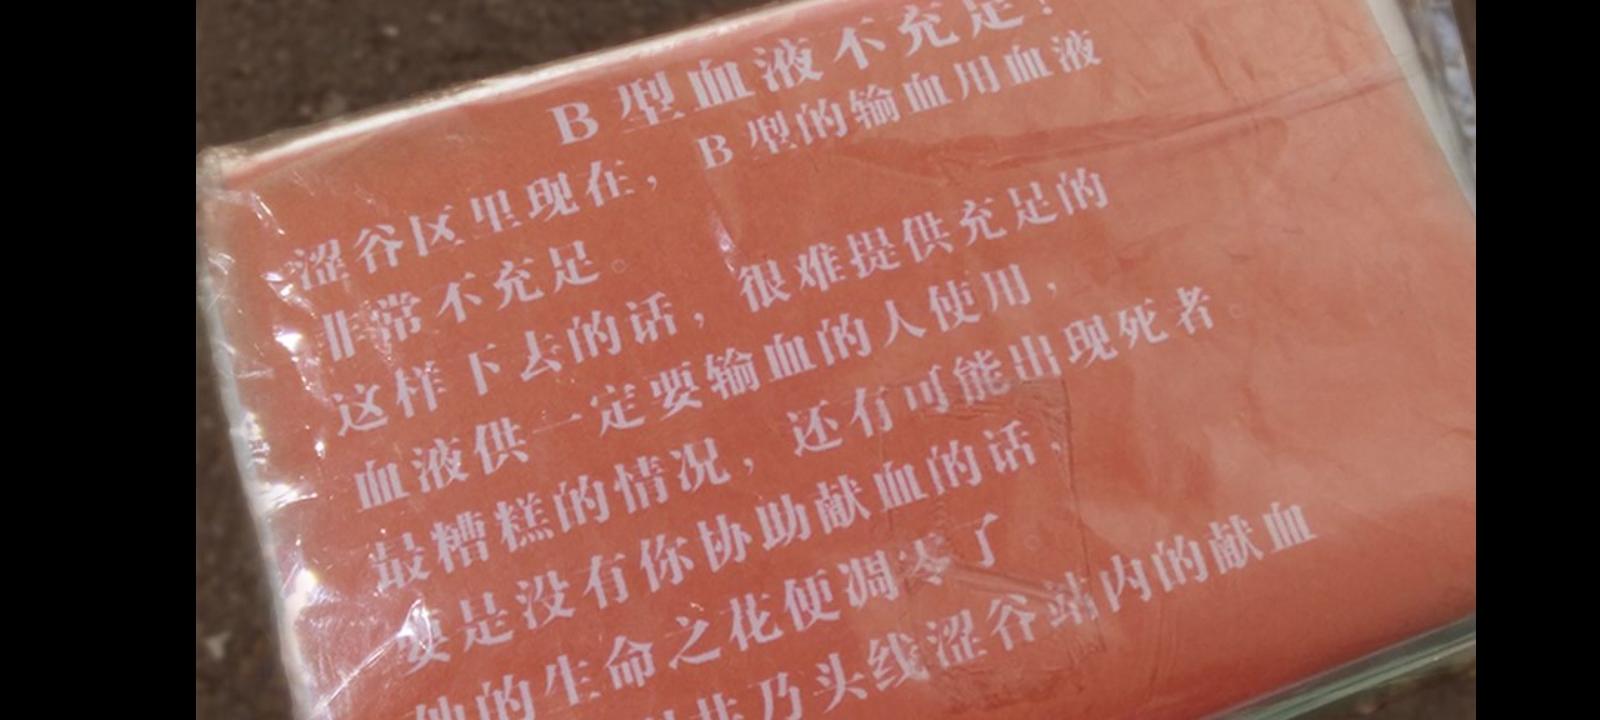 B型血液不充足！
涩谷区里现在，B型的输血用血液
非常不充足。
这样下去的话，很难提供充足的
血液供一定要输血的人使用，
最糟糕的情况，还有可能出现死者。
要是没有你协助献血的话，
他的生命之花便凋零了。
乃头线涩谷站内的献血